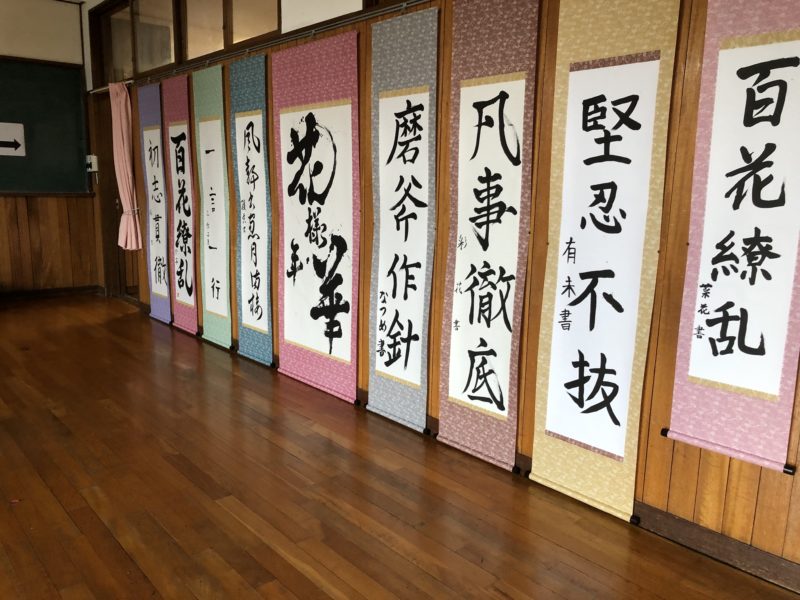 百花繚乱
菜花書
堅忍不抜
有未書
凡事徹底
彩花書
磨斧作針
なつめ書
花様年華
月満楼
一言一行
百花繚乱
初志貫徹